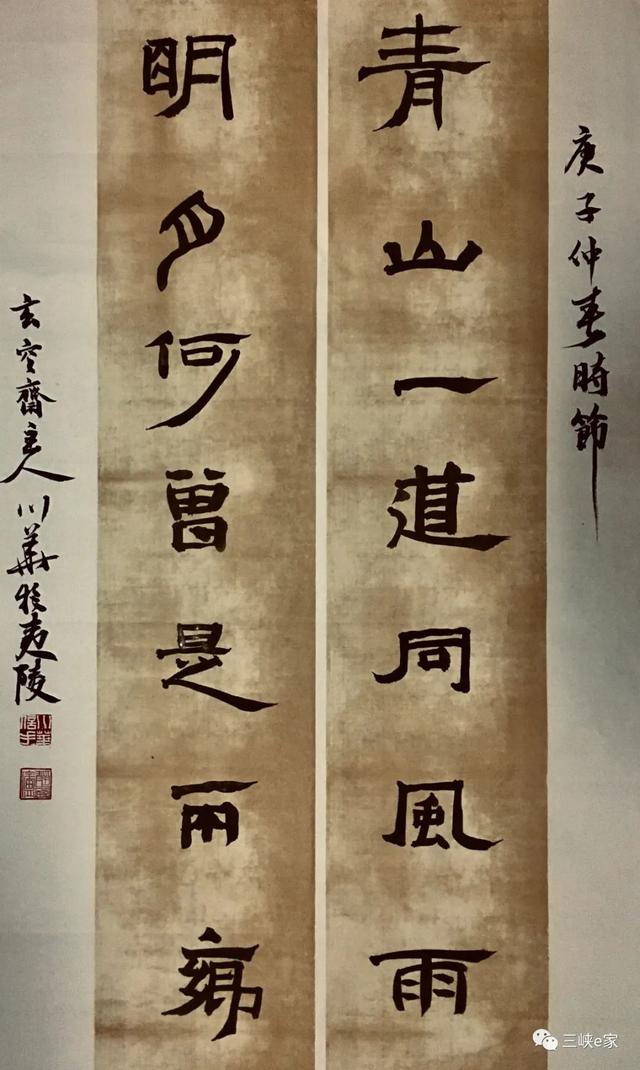 庚子仲春時節
青山一道同風雨
明月何曾是兩鄉
玄空齋主人川華於夷陵
三峡e家